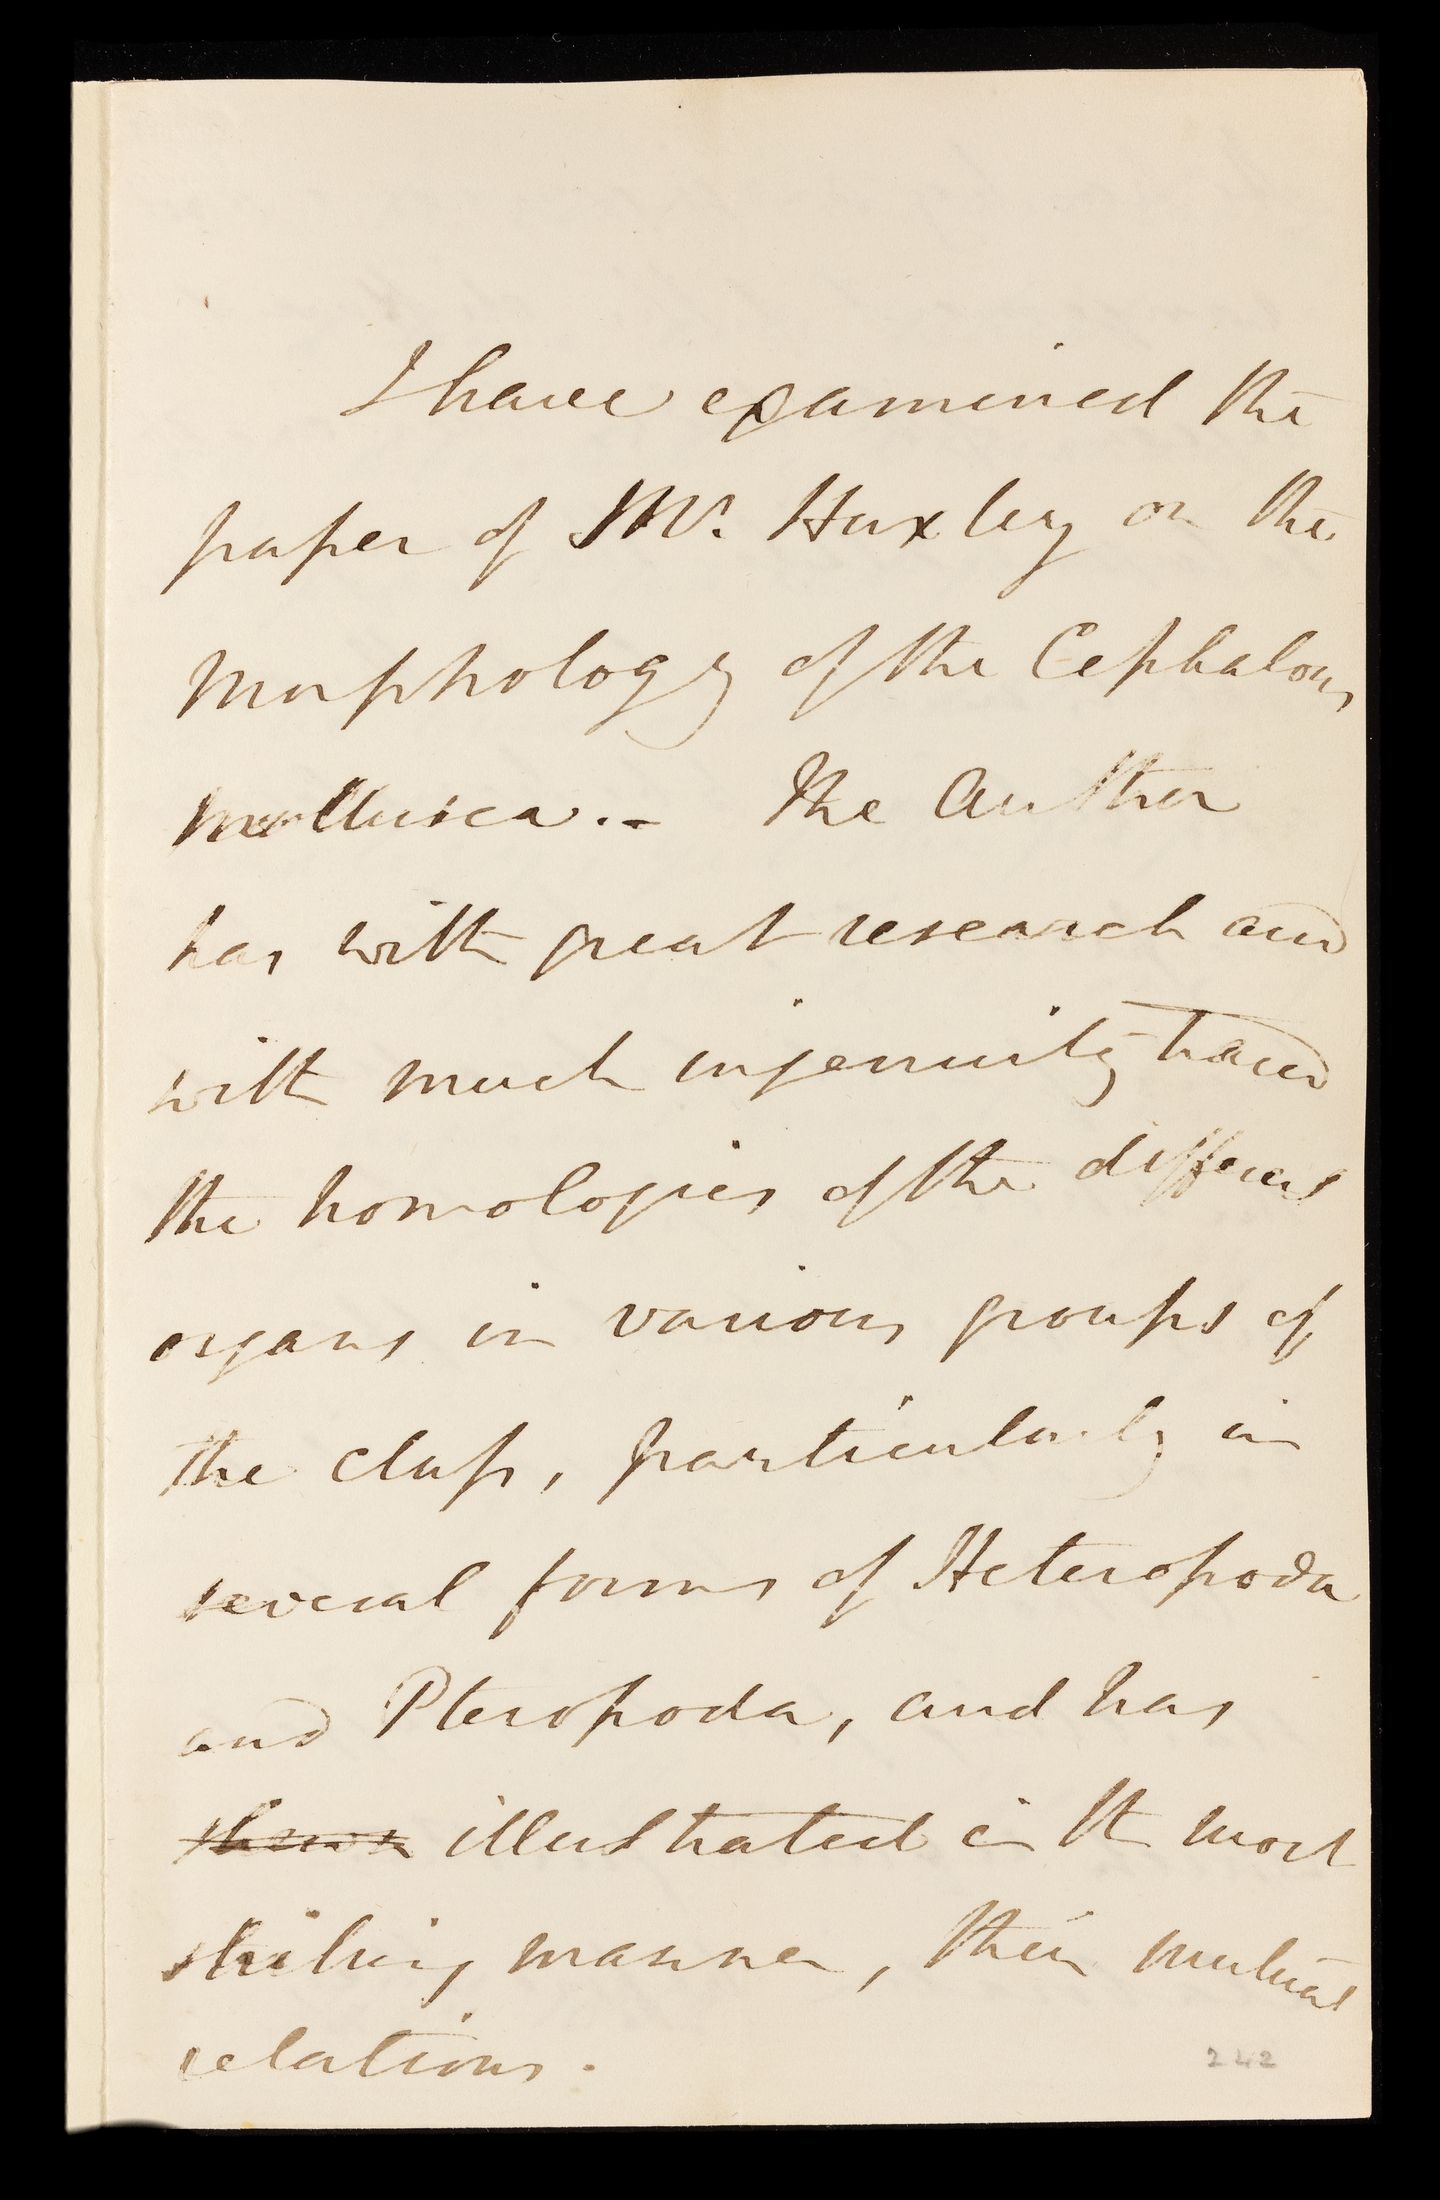 I have examined the
paper of Mr. Huxley on the
Morphology of the Cephalous
Mollusca.-  The Author
has with great research and
with much ingenuity traced
the homologies of the different
organs in various groups of
the class, particularly in
several forms of Heteropoda
and Pteropoda, and has
shewn illustrated in the most
striking manner, their mutual
relations.
242